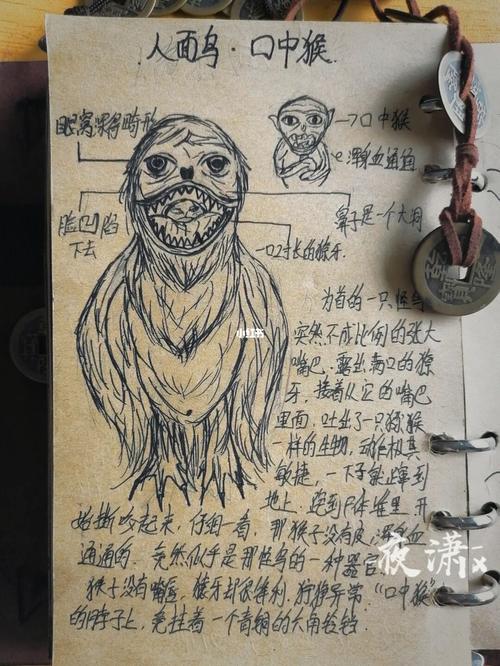 人面鸟·口中猴
眼窝深得畸形
口中猴
浑身血通通
脸凹陷
下去
鼻子是一个大洞
一口寸长的獠牙
为首的一只怪鸟
突然不成比例的张大
嘴巴。露出满口的獠
牙,接着从它的嘴巴
里面,吐出了一只猕猴
一样的生物,动作极其
敏捷,一下子就蹿到
地上,跑到尸体堆里,开
始撕咬起来,仔细一看,那猴子没有皮,浑身血
通通的,竟然似乎是那怪鸟的一种器官
猴子没有嘴唇,獠牙却很锋利,狰狞异常,“口中猴”
的脖子上,竟挂着一个青铜的六角铃铛。
小红书
夜潇